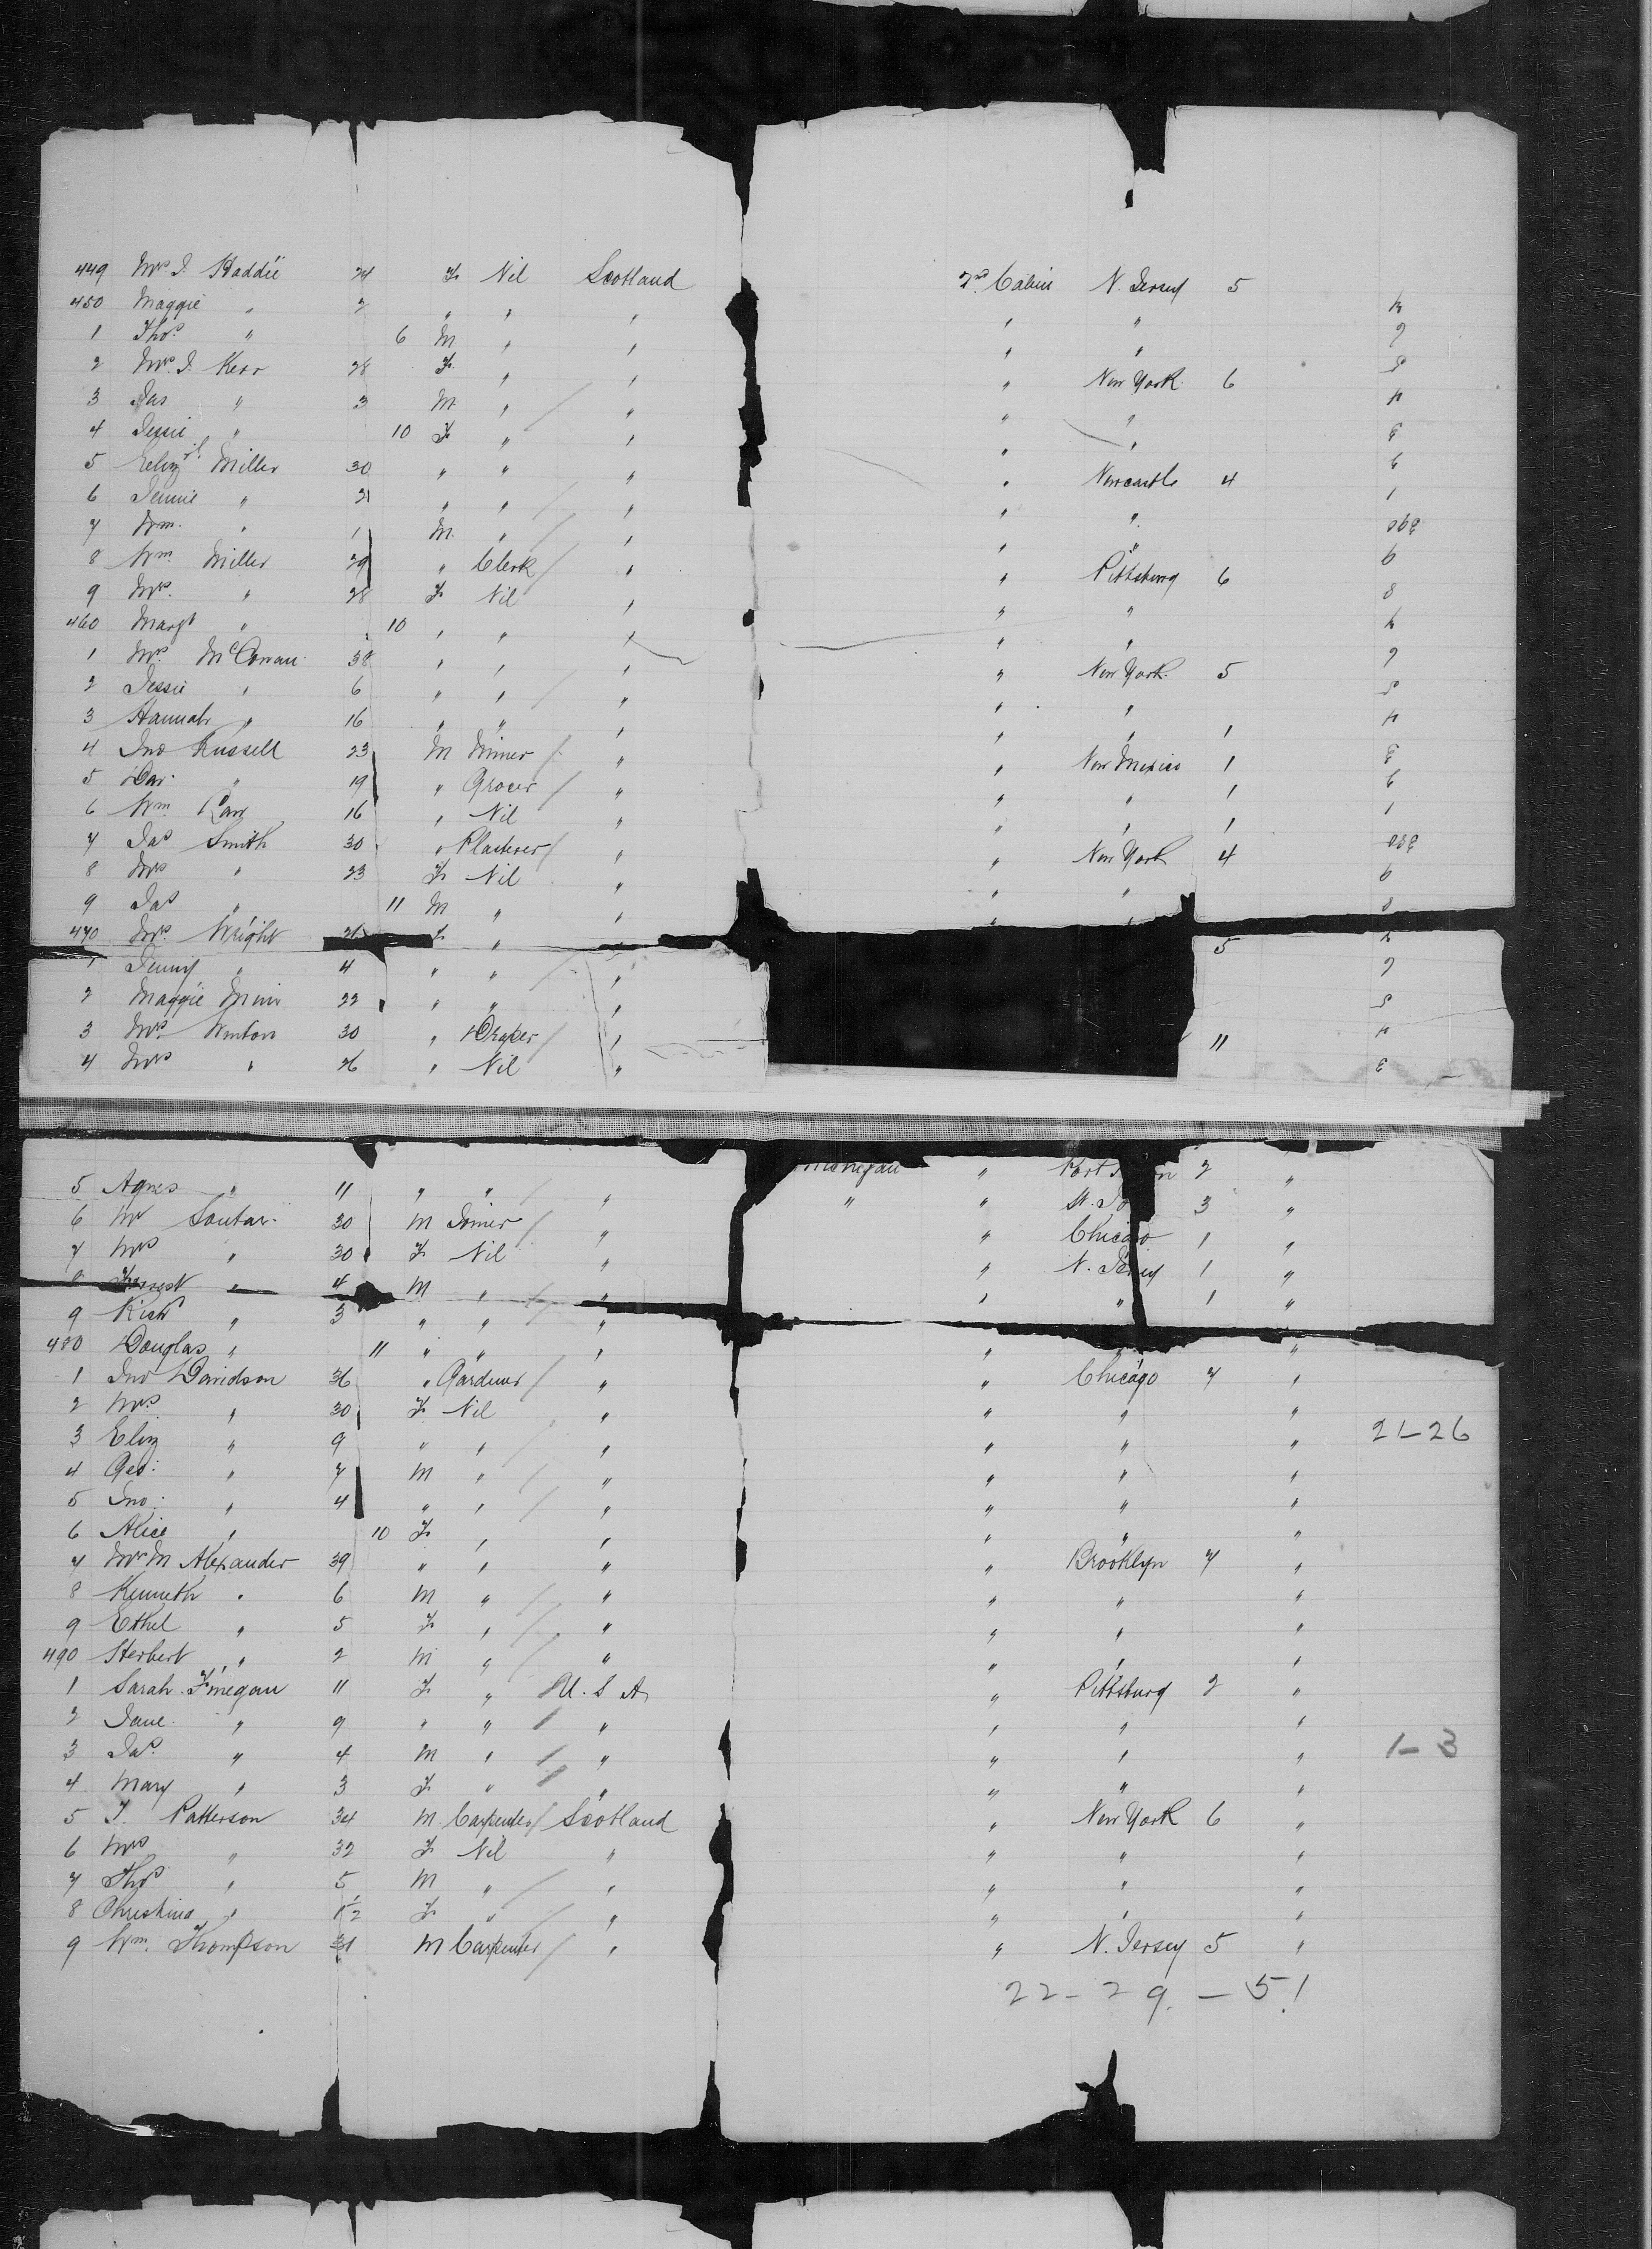 449 Mrs J. Haddie 24 F Nil Scotland 2nd Cabin N. Jersey 5
450 Maggie " 2 " " " " "
1 Thos " 6 M " " " "
2 Mrs. J. Kerr 28 F " " " New York 6
3 Jas " 3 M " " " "
4 Jessie " 10 F " " " "
5 Eliz Miller 30 " " " " Newcastle 4
6 Jennie " 21 " " " " "
7 Wm. " 1 M " " " "
8 Wm Miller 29 " Clerk " " Pittsburg 6
9 Mrs. " 28 F Nil " " "
460 Margt " 10 " " " " "
1 Mrs. McCowan 38 " " " " New York 5
2 Jessie " 6 " " " " "
3 Hannah " 16 " " " " " 1
4 Jno Russell 23 M Miner " " New Mexico 1
5 Dav: " 19 " Grocer " " " 1
6 Wm. 16 " Nil " " " 1
7 Jas Smith 30 " Plasterer " " New York 4
8 Mrs " 23 F Nil " " "
9 Jas " 11 M " " " "
470 Mrs. Wright F " 5
1 Jenny " 4 " " "
2 Maggie 22 " " "
3 Mrs. Winton 30 " Draper " 11
4 Mrs " 26 " Nil "
5 Agnes " 11 " " " " 2 "
6 Mr Soutar 30 M Joiner " " " St. 3 "
7 Mrs " 30 F Nil " " Chicago 1 "
8 " 4 M " " " N. Jersey 1 "
9 " 3 " " " " " 1 "
480 Douglas " 11 " " " " " "
1 Jno Davidson 36 " Gardener " " Chicago 7 "
2 Mrs " 30 F Nil " " " "
3 Eliz " 9 " " " " " " 21-26
4 Geo: " 7 M " " " " "
5 Jno: " 4 " " " " " "
6 Alice " 10 F " " " " "
7 Mrs M Alexander 39 " " " " Brooklyn 7 "
8 Kenneth " 6 M " " " " "
9 Ethel " 5 F " " " " "
490 Herbert " 2 M " " " " "
1 Sarah Finegan 11 F " U. S. A " Pittsburg 2 "
2 Jane " 9 " " " " " "
3 Jas. " 4 M " " " " " 1-3
4 Mary " 3 F " " " " "
5 J. Patterson 34 M Carpenter Scotland " New York 6 "
6 Mrs " 32 F Nil " " " "
7 Thos " 5 M " " " " "
8 Christina " 1½ F " " " " "
9 Wm. Thompson 31 M Carpenter " " N. Jersey 5 "
22-29.-51